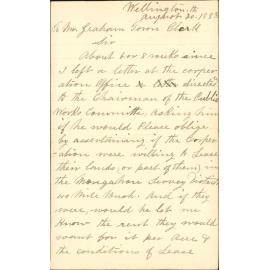 Wellington
August 20. 188
To Mr Graham Town Clerk
Sir
About 6 or 8 weeks since
I left a letter at the Corper
ation Office directed
to the Chairman of the Public
Works Committe, asking him
if he would Please oblige
by assertaining if the Corper
ation were willing to Lease
their Lands, or part of them, in
the Mangahoe Survey District,
Mile Bush. And if they
were, would he let me
Know the rent they would
want for it per Acre &
the conditions of Lease